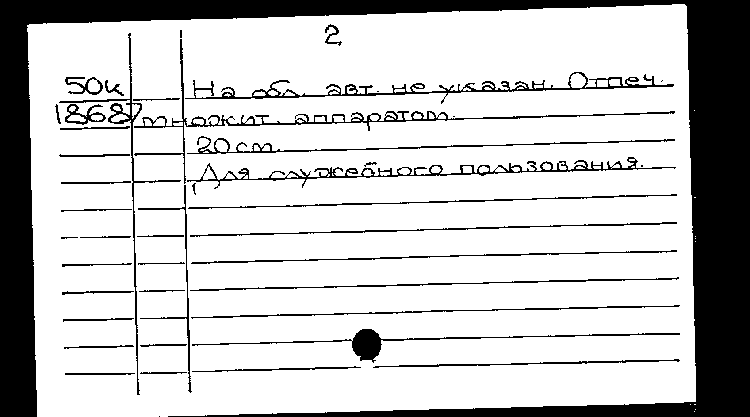 2
50к На обл. авт. не указан. Отпеч.
1868 множит. аппаратом.
20 см.
Для служебного пользования.